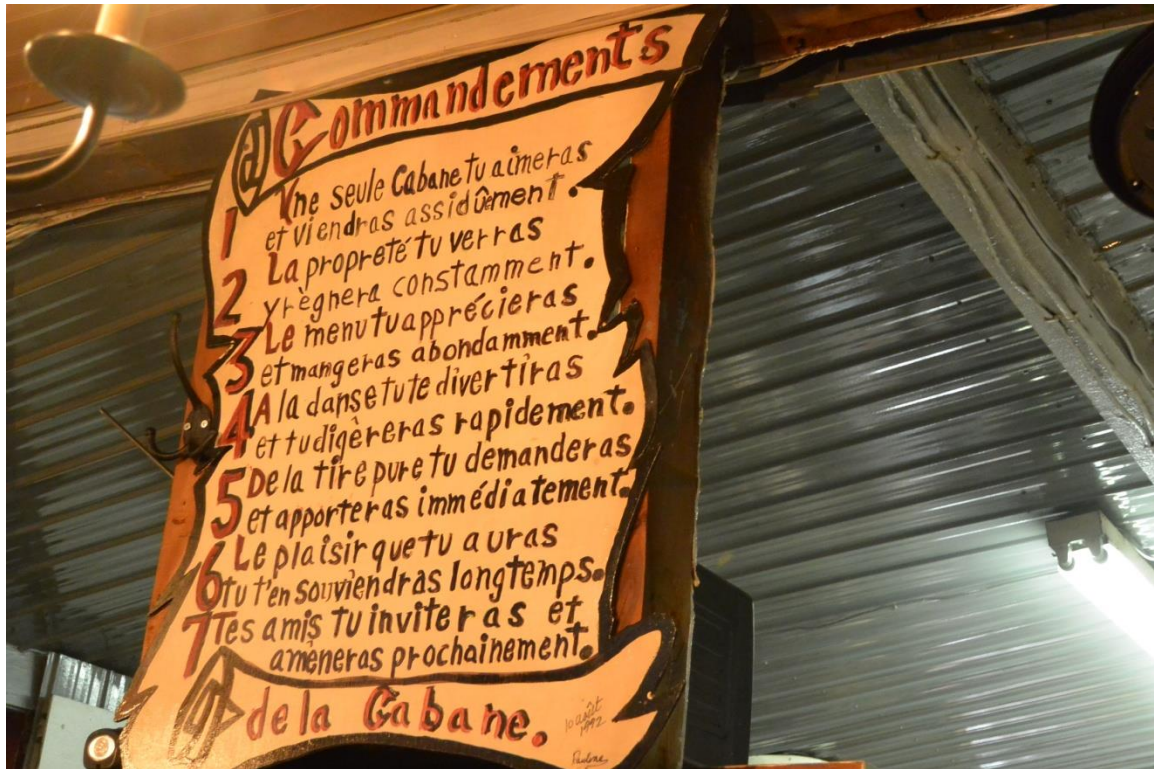 Commandements
1 Une seule Cabane tu aimeras
et viendras assidûement.
2 La propreté tu verras
y règnera constamment.
3 Le menu tu apprécieras
et mangeras abondamment.
4 A la danse tu te divertiras
et tu digèreras rapidement.
5 De la tire pure tu demanderas
et apporteras immédiatement.
6 Le plaisir que tu auras
tu t'en souviendras longtemps.
7 Tes amis tu inviteras et
amèneras prochainement.
de la Cabane.
10 août
1992